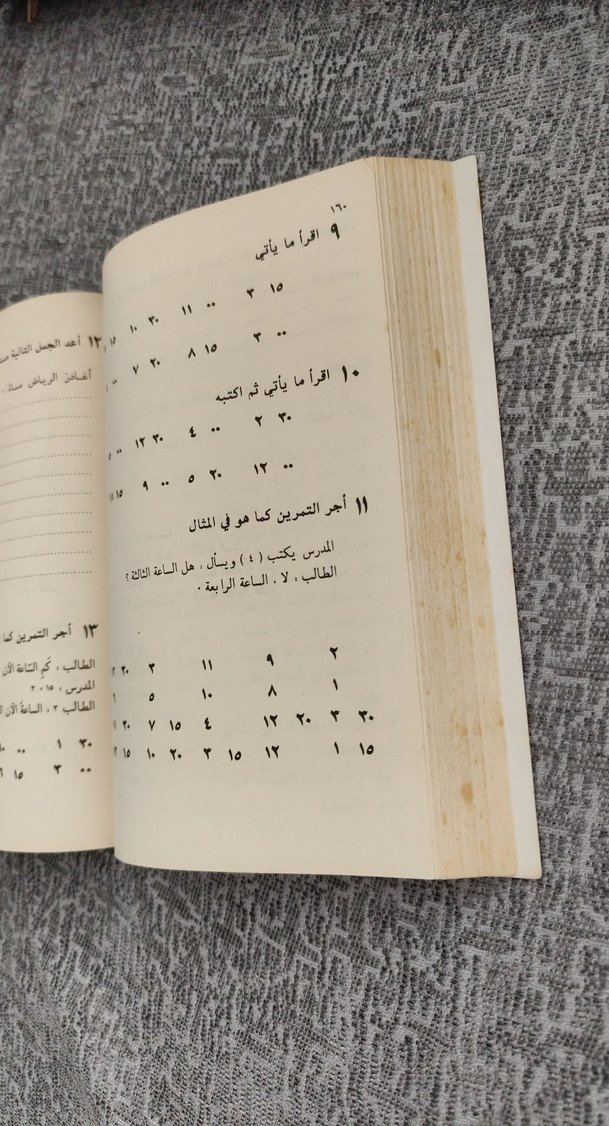 ١٦٠
٩ اقرأ ما يأتي
١٥ ٣ ٠٠ ١١ ٣٠ ١٠ ١٥
٠٠ ٣ ١٥ ٨ ٢٠ ٧ ٠٠
١٠ اقرأ ما يأتي ثم اكتبه
٣٠ ٢ ٠٠ ٤ ٣٠ ١٢ ٠٠
٠٠ ١٢ ٢٠ ٥ ٠٠ ٩ ١٥ ١١
١١ أجر التمرين كما هو في المثال
المدرس يكتب ( ٤ ) ويسأل : هل الساعة الثالثة ؟
الطالب : لا . الساعة الرابعة .
٢ ٩ ١١ ٣ ٢٠
١ ٨ ١٠ ٥
٣٠ ٣ ٢٠ ١٢ ٤ ١٥ ٧ ٢٠
١٥ ١ ١٢ ١٥ ٣ ٢٠ ١٠ ١٥
١٢ أعد الجمل التالية
أغادر الرياض مساء .
١٣ أجر التمرين
الطالب : كم الساعة الآن
المدرس : ٣،١٥
الطالب ٢ : الساعة الآن
٣٠ ١ ٠٠
٠٠ ٣ ١٥